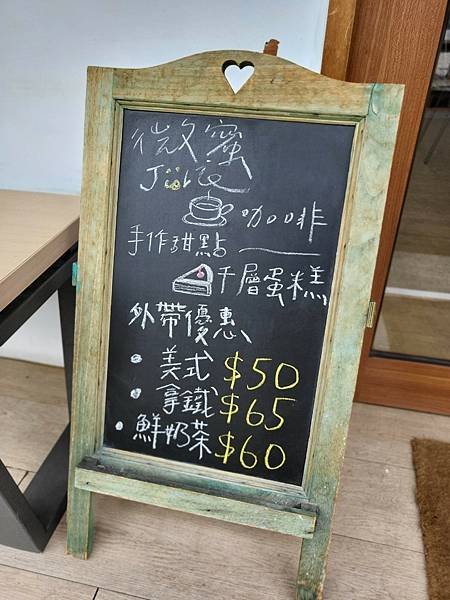 微蜜
咖啡
手作甜點
千層蛋糕
外帶優惠
美式 $50
拿鐵 $65
鮮奶茶 $60